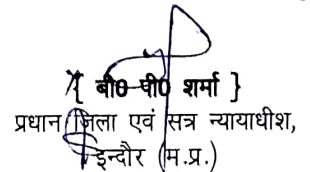 { बी0 पी0 शर्मा }
प्रधान जिला एवं सत्र न्यायाधीश,
इन्दौर (म.प्र.)